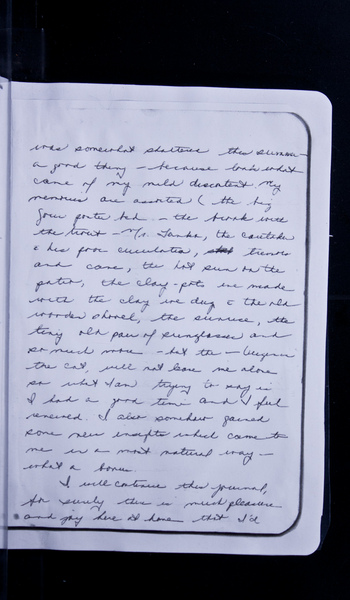 was somewhat shattered this summer
a good thing – because look what
came of my mild discontent. My
memories are assorted ( the big
four poster bed – the trunk with
the – Mr. the caretaker
& his poor circulation, tremor
and cane, the hot sun on the
patio, the clay-pots we made
with the clay we dug & the old
wooden shovel, the sunrise, the
tiny old pair of sunglasses and
so much more – but the –
the cat, will not leave me alone
so what I am trying to say is
I had a good time and I feel
renewed. I also somehow gained
some new insights which came to
me in a most natural way –
what a bonus.
I will continue this journal,
for surely there is much pleasure
and joy here at home that I'd